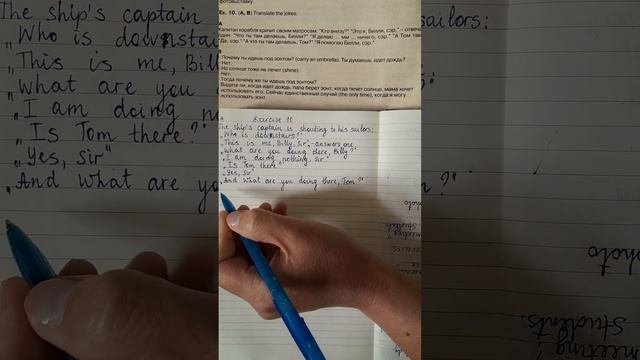 фотовыставку.
Ex. 10. (A, B) Translate the jokes.
A
Капитан корабля кричит своим матросам: "Кто внизу?" "Это я, Билли, сэр." – отвечает
один. "Что ты там делаешь, Билли?" "Я делаю ... ничего, сэр." "А Том там?"
"Да, сэр." "А что ты там делаешь, Том?" "Я помогаю Билли, сэр."
Почему ты идешь под зонтом? (carry an umbrella). Ты думаешь, идет дождь?
Нет.
Но солнце тоже не печет (shine).
Нет.
Тогда почему же ты идешь под зонтом?
Видите ли, когда идет дождь, папа берет зонт, когда печет солнце, мама хочет
использовать его. Сейчас единственный случай (the only time), когда я могу
использовать зонт.
A Exercise 10.
The ship's captain is shouting to his sailors:
"Who is downstairs?"
"This is me, Billy, Sir", - answers one.
"What are you doing there, Billy?"
"I am doing nothing, Sir."
"Is Tom there?"
"Yes, Sir"
"And what are you doing there, Tom?"